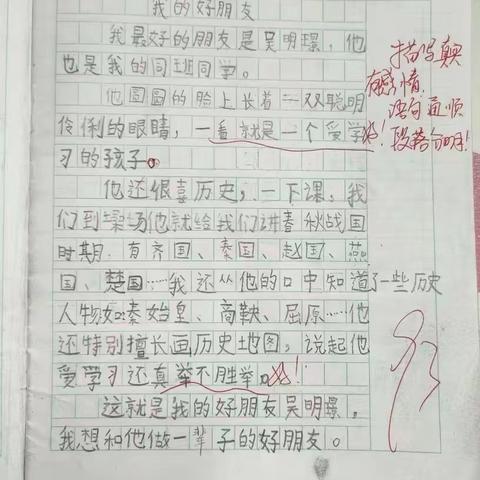 我的好朋友
我最好的朋友是吴明璟，他
也是我的同班同学。
他圆圆的脸上长着一双聪明
伶俐的眼睛，一看就是一个爱学
习的孩子。
他还很喜历史，一下课，我
们到操场他就给我们讲春秋战国
时期.有齐国、秦国、赵国、燕
国、楚国……我还从他的口中知道了一些历史
人物如:秦始皇、商鞅、屈原……他
还特别擅长画历史地图，说起他
爱学习还真举不胜举。
这就是我的好朋友吴明璟，
我想和他做一辈子的好朋友。
描写真
有感情，
语句通顺
段落分明！